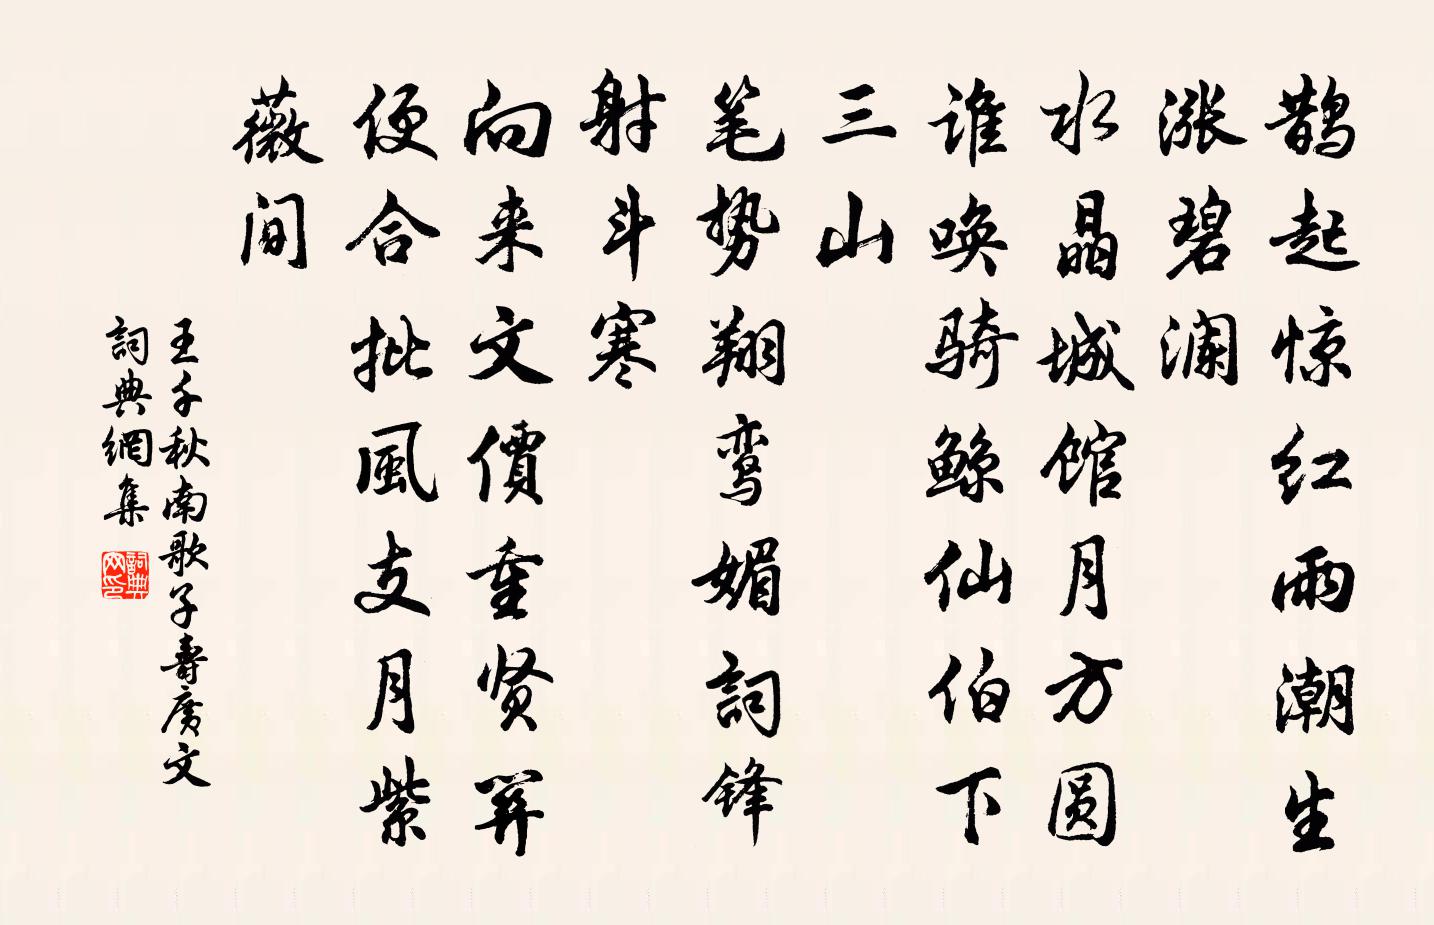 鹊起惊红雨潮生
涨碧澜
水晶城馆月方圆
谁唤骑鲸仙伯下
三山
笔势翔鸾媚詞锋
射斗寒
向来文價重贤关
便合批風支月紫
薇间
王千秋南歌子壽廣文
詞典網集
詞典网印